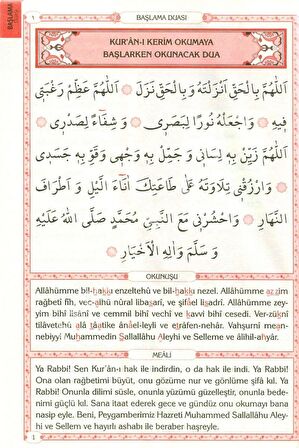 BAŞLAMA
1
BAŞLAMA DUASI
KUR'ÂN-I KERİM OKUMAYA
BAŞLARKEN OKUNACAK DUA
اَللّٰهُمَّ بِالْحَقِّ اَنْزَلْتَهُ وَبِالْحَقِّ نَزَلَ ۞ اَللّٰهُمَّ عَظِّمْ رَغْبَتِى
فِيهِ ۞ وَاجْعَلْهُ نُورًا لِبَصَرِى ۞ وَ شِفَاءً لِصَدْرِى ۞
اَللّٰهُمَّ زَيِّنْ بِهِ لِسَانِى وَ جَمِّلْ بِهِ وَجْهِى وَقَوِّ بِهِ جَسَدِى
۞ وَارْزُقْنِى تِلَاوَتَهُ عَلٰى طَاعَتِكَ اٰنَاءَ الَّيْلِ وَ اَطْرَافَ
النَّهَارِ ۞ وَاحْشُرْنِى مَعَ النَّبِىِّ مُحَمَّدٍ صَلَّى اللّٰهُ عَلَيْهِ
وَ سَلَّمَ وَاٰلِهِ الْاَخْيَارِ ۞
OKUNUŞU
Allâhümme bil-hakkı enzeltehû ve bil-hakkı nezel. Allâhümme azzim
rağbetî fîh, vec-alhü nûral libasarî, ve şifâel lisadrî. Allâhümme zey-
yin bihî lisânî ve cemmil bihî vechî ve kavvi bihî cesedî. Ver-zûknî
tilâvetehû alâ tâatike ânael-leyli ve etrâfen-nehâr. Vahşurnî mean-
nebiyyi Muhammedin Sallallâhu Aleyhi ve Selleme ve âlihil-ahyâr.
MEÂLİ
Ya Rabbi! Sen Kur'an-ı hak ile indirdin, o da hak ile indi. Ya Rabbi!
Ona olan rağbetimi büyüt, onu gözüme nur ve gönlüme şifâ kıl. Ya
Rabbi! Onunla dilimi süsle, onunla yüzümü güzelleştir, onunla bede-
nimi güçlü kıl. Sana itaat ederek gece ve gündüz onu okumayı bana
nasip eyle. Beni, Peygamberimiz Hazreti Muhammed Sallallâhu Aley-
hi ve Sellem ve hayırlı ashabı ile beraber haşreyle.
1